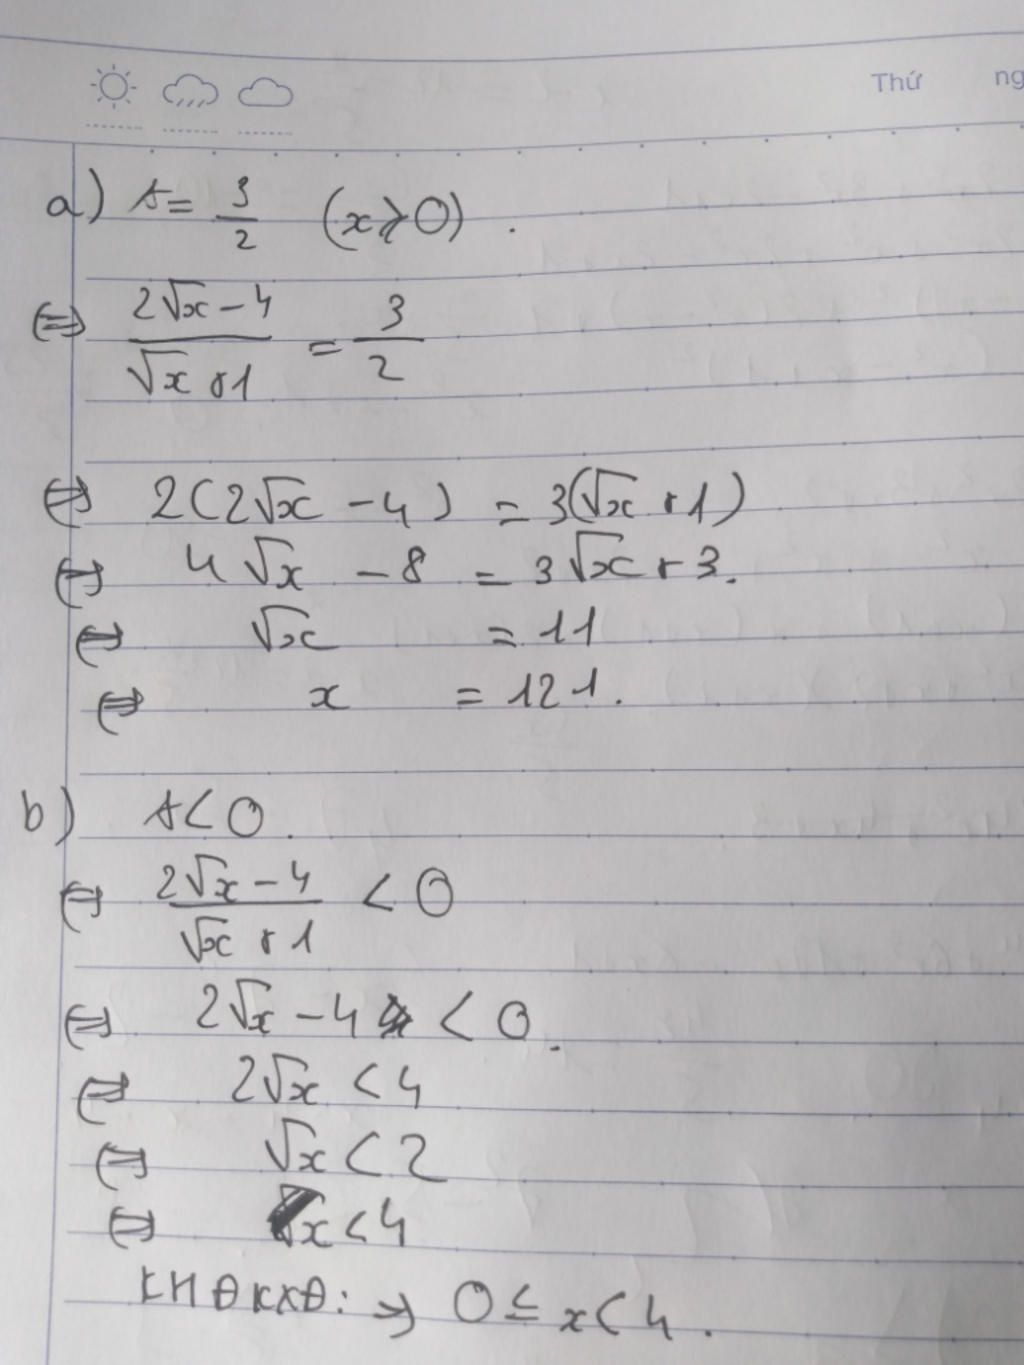 Thứ ng
a) A = 3/2 (x ≥ 0).
⇔ (2√x - 4)/(√x + 1) = 3/2
⇔ 2(2√x - 4) = 3(√x + 1)
⇔ 4√x - 8 = 3√x + 3.
⇔ √x = 11
⇔ x = 121.
b) A < 0.
⇔ (2√x - 4)/(√x + 1) < 0
⇔ 2√x - 4 < 0.
⇔ 2√x < 4
⇔ √x < 2
⇔ x < 4
KH ĐKXĐ: → 0 ≤ x < 4.